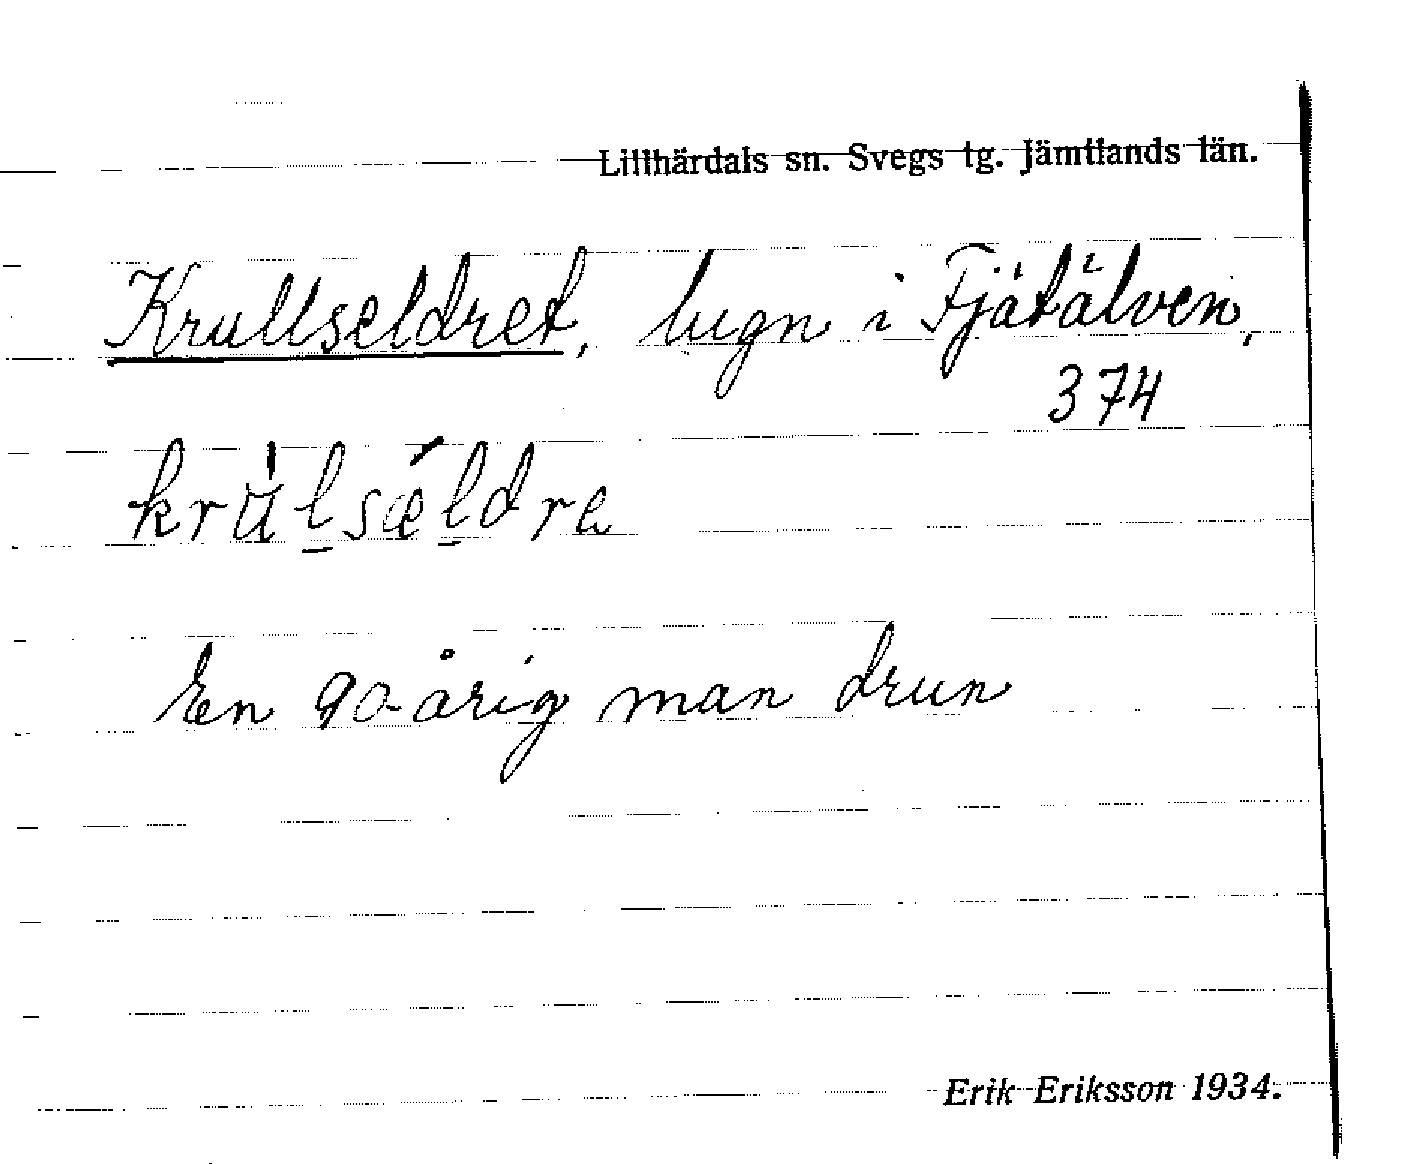 Lillhärdals sn. Svegs tg. Jämtlands län.
Krullseldret, lugn i Fjätälven,
374
krúlsǽldrə
En 90-årig man drun
Erik Eriksson 1934.